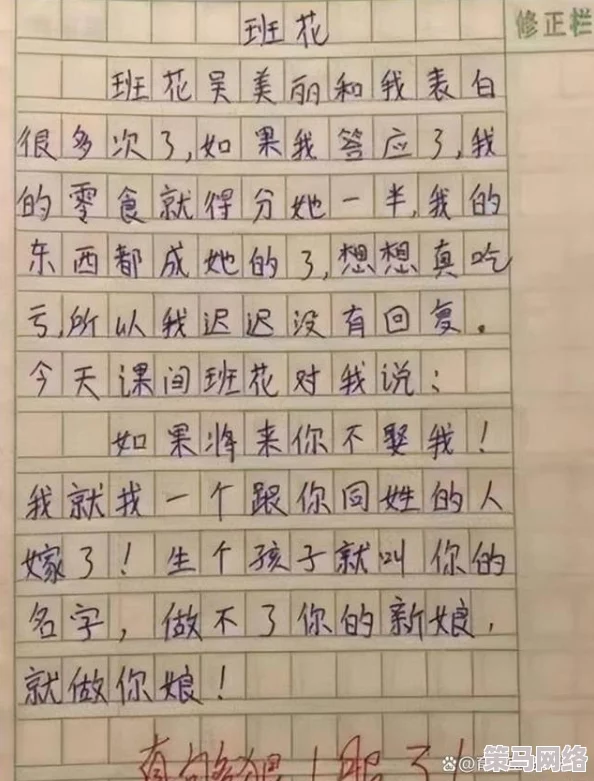 班花
修正栏
班花吴美丽和我表白
很多次了,如果我答应了,我
的零食就得分她一半,我的
东西都成她的了,想想真吃
亏,所以我迟迟没有回复。
今天课间班花对我说:
如果将来你不娶我!
我就找一个跟你同姓的人
嫁了!生个孩子就叫你的
名字,做不了你的新娘,
就做你娘!
服了!
策马网络